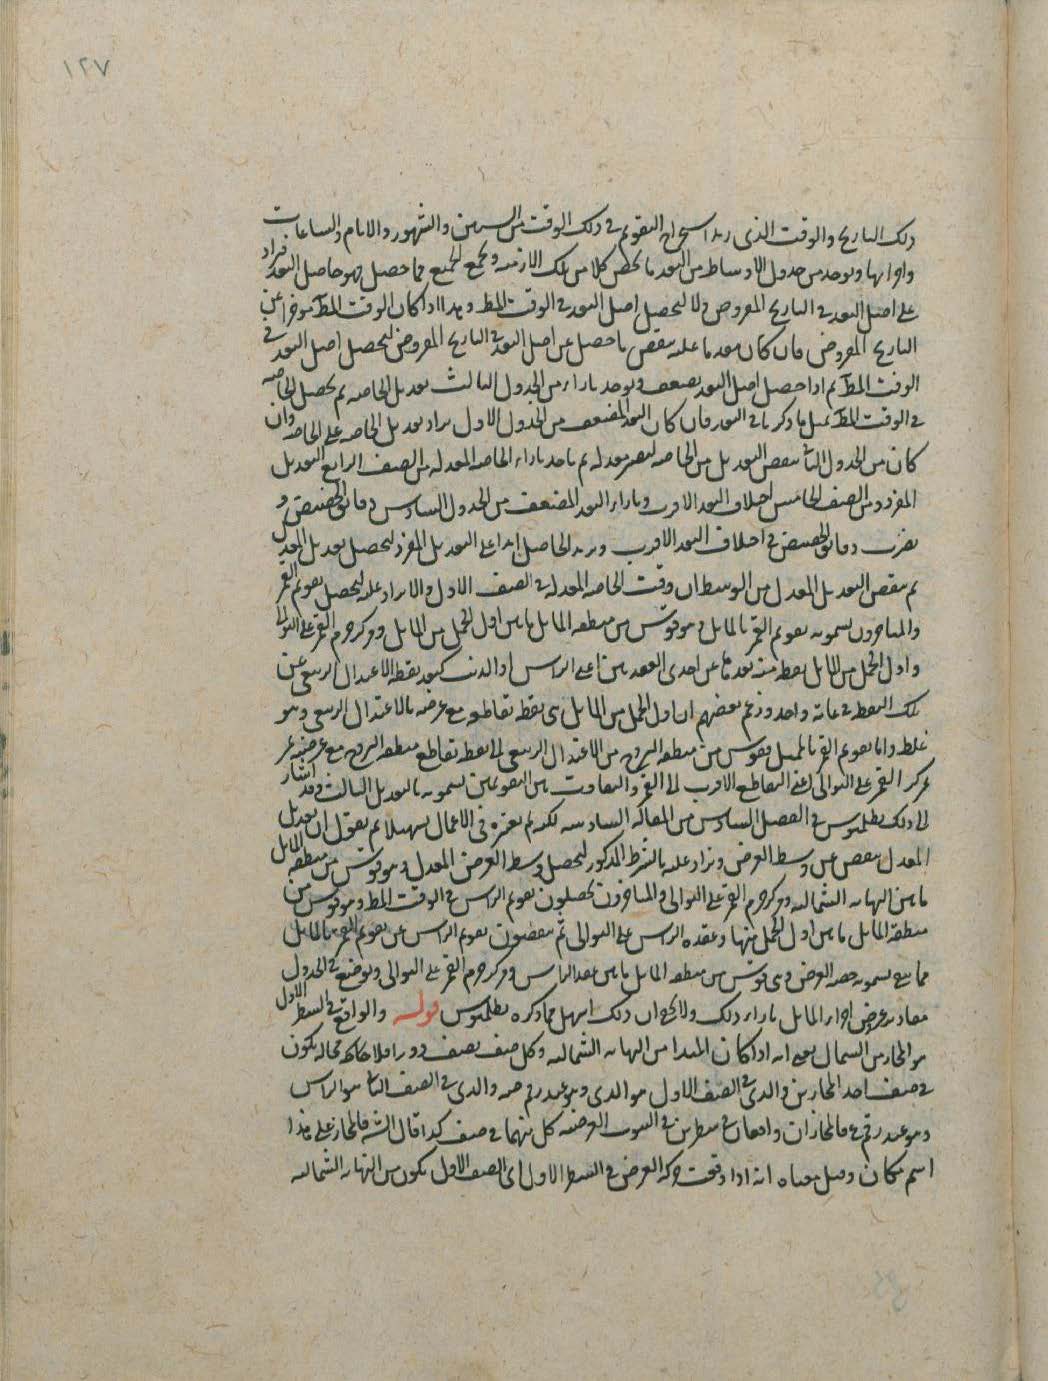 ١٢٧
ذلك التاريخ والوقت الذى استخراج التقويم فى ذلك الوقت من السنين والشهور والايام والساعات
واجزائها ويوخذ من جدول الاوساط من البعد ما يخص كلا من تلك الازمنه ويجمع الجميع فما حصل فهو حاصل البعد فيزاد
على اصل البعد فى التاريخ المفروض اولا ليحصل اصل البعد فى الوقت المط وهذا اذا كان الوقت المط موخرا عن
التاريخ المفروض فان كان مقدما عليه ينقص ما حصل عن اصل البعد فى التاريخ المفروض ليحصل اصل البعد فى
الوقت المط ثم اذا حصل اصل البعد يضعف ويوخذ بازاء من الجدول الثالث تعديل الخاصه ثم يحصل الخاصه
فى الوقت المط بمثل ما ذكرنا فى البعد فان كان البعد المضعف من الجدول الاول يزاد تعديل الخاصه على الخاصه وان
كان من الجدول الثانى ينقص التعديل من الخاصه ليصير معدله ثم ياخذ بازاء الخاصه المعدله من الصنف الرابع التعديل
المفرد ومن الصنف الخامس اختلاف البعد الاقرب وبازاء البعد المضعف من الجدول السادس دقائق الحصص و
يضرب دقائق الحصص فى اختلاف البعد الاقرب ويزيد الحاصل ابدا على التعديل المفرد ليحصل تعديل المعدل
ثم ينقص التعديل المعدل من الوسط ان وقعت الخاصه المعدله فى الصنف الاول والا يزاد عليه ليحصل تقويم القمر
والمتاخرون يسمونه تقويم القمر بالمايل وهو قوس من منطقه المايل ما بين اول الحمل من المايل ومركز جرم القمر على التوالى
واول الحمل من المايل نقطه منه بعدها عن احدى العقدتين اعنى الراس او الذنب كبعد نقطه الاعتدال الربيعى عن
تلك النقطه فى جهة واحد وزعم بعضهم ان اول الحمل من المايل هى نقطه تقاطعه مع عرضيه بالاعتدال الربيعى وهو
غلط واما تقويم القمر بالممثل فقوس من منطقه البروج من الاعتدال الربيعى الى نقطه تقاطع منطقه البروج مع عرضيه تمر
بمركز القمر على التوالى اعنى التقاطع الاقرب الى القمر والتفاوت بين التقويمين يسمونه بالتعديل الثالث وقد اشار
الى ذلك بطلميوس فى الفصل السادس من المقاله السادسه لكنه لم يعتبره فى الاعمال تسهيلا ثم يقول ان تعديل
المعدل ينقص من وسط العرض ويزاد عليه بالشرط المذكور ليحصل وسط العرض المعدل وهو قوس من منطقه المايل
ما بين النهايه الشماليه ومركز جرم القمر على التوالى والمتاخرون يحصلون تقويم الراس فى الوقت المط وهو قوس من
منطقه المايل ما بين اول الحمل منها وعقده الراس على التوالى ثم ينقصون تقويم الراس من تقويم القمر بالمايل
فما بقى يسمونه حصه العرض وهى قوس من منطقه المايل ما بين عقده الراس ومركز جرم القمر على التوالى ويوضع فى الجدول
مقادير عروض اجزاء المايل بازاء ذلك ولا يخفى ان ذلك اسهل مما ذكره بطلميوس قوله والواقع فى السطر الاول
هو المجاز من الشمال يعنى انه اذا كان المبدا من النهايه الشماليه وكل صنف نصف دور فلا محاله يكون
فى صنف احد المجازين والذى فى الصنف الاول هو الذى وهو عند رقم صه والذى فى الصنف الثانى هو الراس
وهو عند رقم فالمجازان واقعان فى سطرين فى البيوت العرضيه كل منهما فى صنف كذا قال الشه فالمجاز على هذا
اسم مكان وقيل معناه انه اذا وقعت حركه العرض فى السطر الاول اى الصنف الاول يكون من النهايه الشماليه